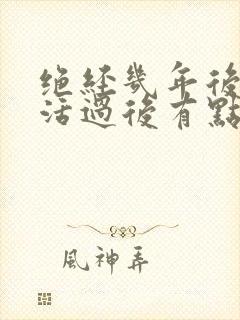 绝經幾年後
活過後有點
風神弄